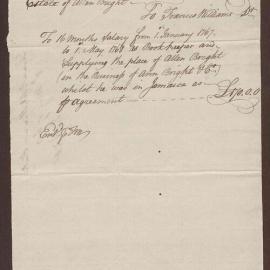 Estate of Allan Bright
To Francis Williams Dr
To 16 Months Salary from 1st January 1767
to 1st May 1768 as Bookkeeper and
Supplying the place of Allan Bright
in the Business of Bright & Co.
whilst he was in Jamaica as
agreement £170.0.0